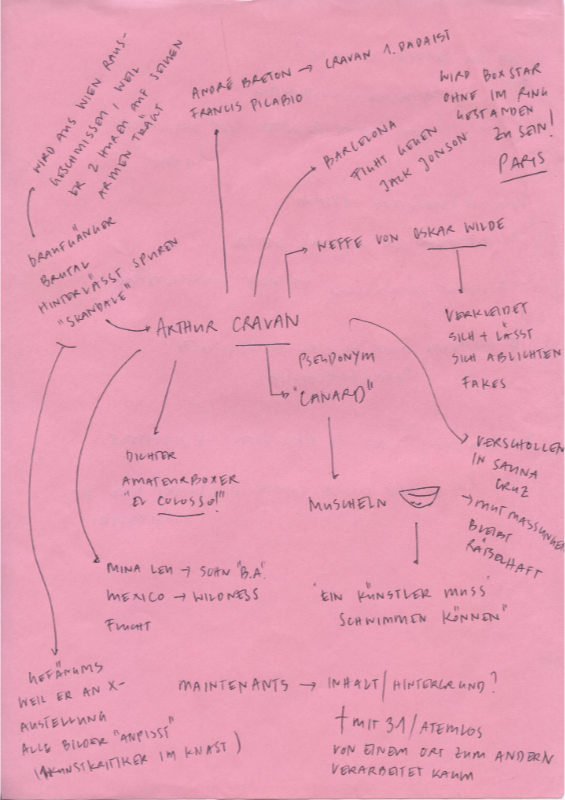 WIRD AUS WIEN RAUS-
GESCHMISSEN, WEIL
ER 2 HUREN AUF SEINEN
ARMEN TRÄGT
ANDRÉ BRETON → CRAVAN 1. DADAIST
FRANCIS PICABIO
BARCELONA
FIGHT GEGEN
JACK JONSON
WIRD BOXSTAR
OHNE IM RING
GESTANDEN
ZU SEIN!
PARIS
DRAUFGÄNGER
BRUTAL
HINTERLÄSST SPUREN
"SKANDALE"
NEFFE VON OSKAR WILDE
VERKLEIDET
SICH + LÄSST
SICH ABLICHTEN
FAKES
ARTHUR CRAVAN
PSEUDONYM
"CANARD"
DICHTER
AMATEURBOXER
"EL COLOSSO!"
MUSCHELN
VERSCHOLLEN
IN SALINA
CRUZ
→ MUTMASSUNGEN
BLEIBT
RÄTSELHAFT
MINA LEU → SOHN "B.A."
MEXICO → WILDNESS
FLUCHT
"EIN KÜNSTLER MUSS
SCHWIMMEN KÖNNEN"
GEFÄNGNIS
WEIL ER AN X-
AUSTELLUNG
ALLE BILDER "ANPISST"
(1 KUNSTKRITIKER IM KNAST)
MAINTENANTS → INHALT/HINTERGRUND?
† MIT 31/ATEMLOS
VON EINEM ORT ZUM ANDERN
VERARBEITET KAUM